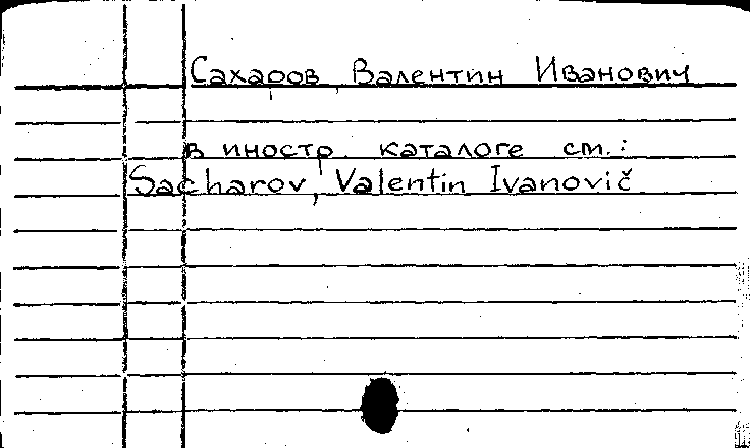 Сахаров, Валентин Иванович
в иностр. каталоге см.:
Sacharov, Valentin Ivanovič